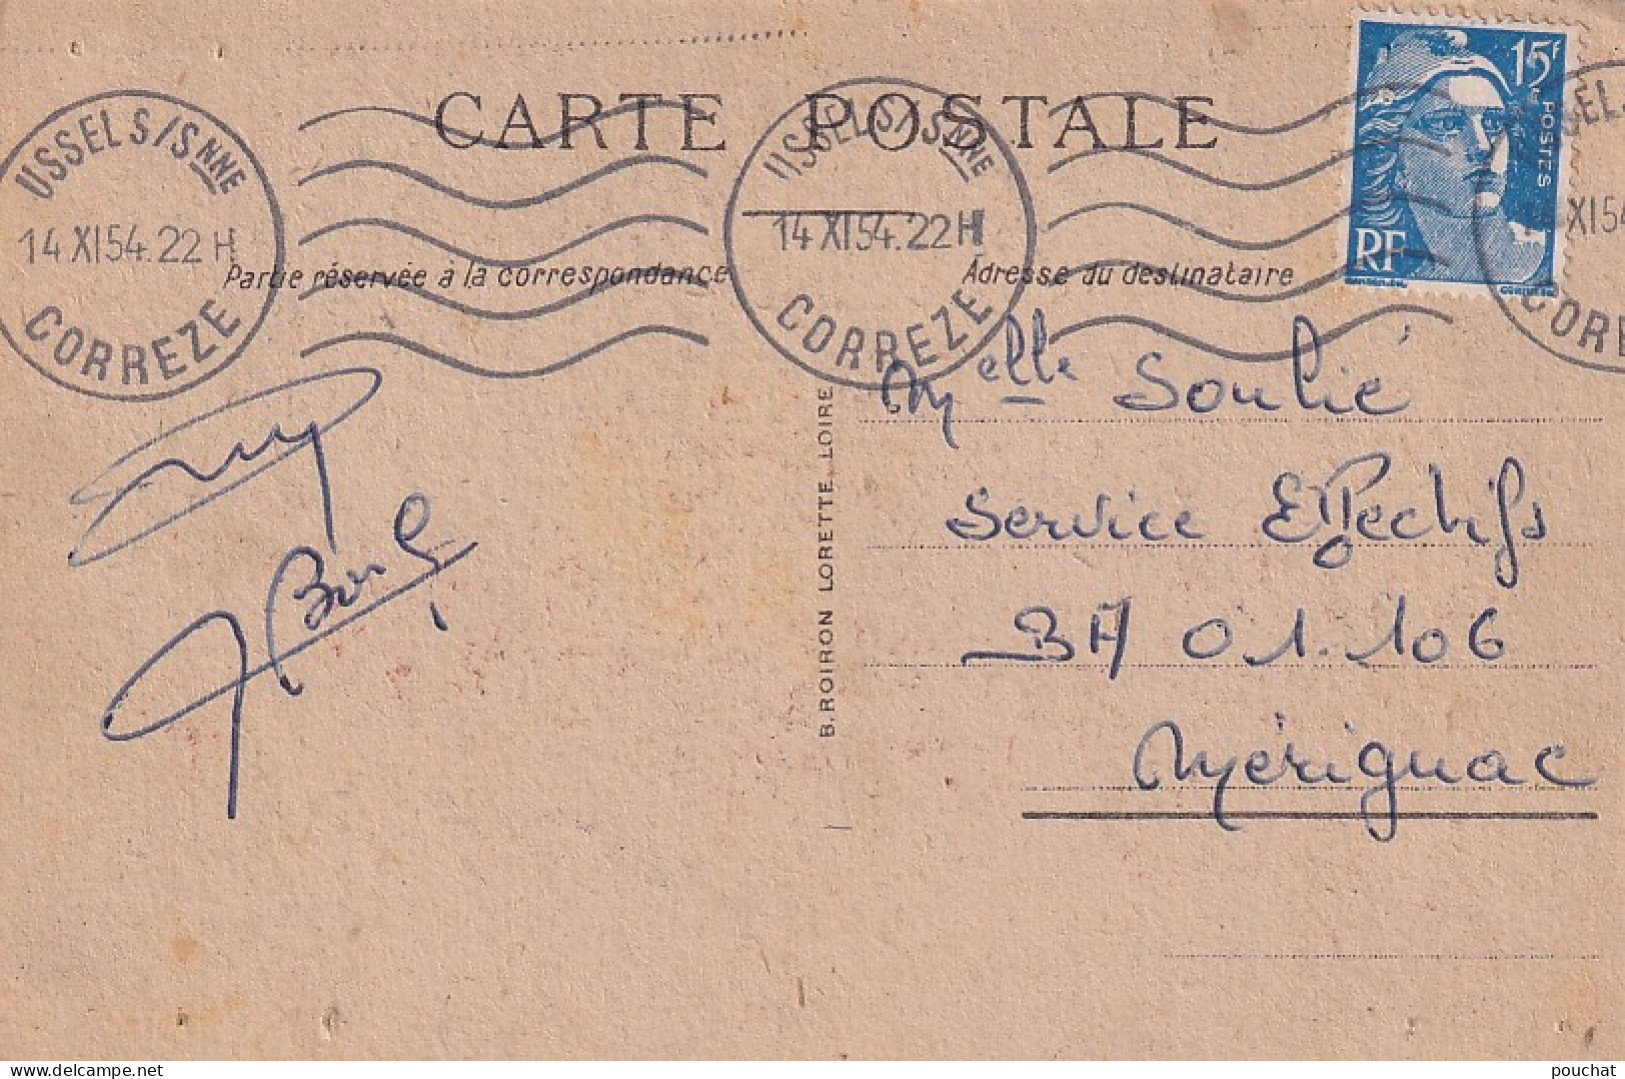 CARTE POSTALE
USSEL S/SNNE
14 XI 54. 22 H
CORREZE
USSEL S/SNNE
14 XI 54. 22 H
CORREZE
15F
POSTES
RF
XI 54
Partie réservée à la correspondance
Adresse du destinataire
B. ROIRON LORETTE LOIRE
Melle Soulié
Service Effectifs
BA 01.106
Mérignac
pouchat